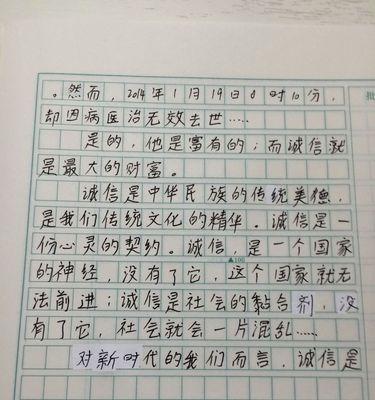 。然而，2014年1月19日0时10分，
却因病医治无效去世……
是的，他是富有的；而诚信就
是最大的财富。
诚信是中华民族的传统美德，
是我们传统文化的精华。诚信是一
份心灵的契约。诚信，是一个国家
▲100
的神经，没有了它，这个国家就无
法前进；诚信是社会的黏合剂，没
有了它，社会就会一片混乱……
对新时代的我们而言，诚信是